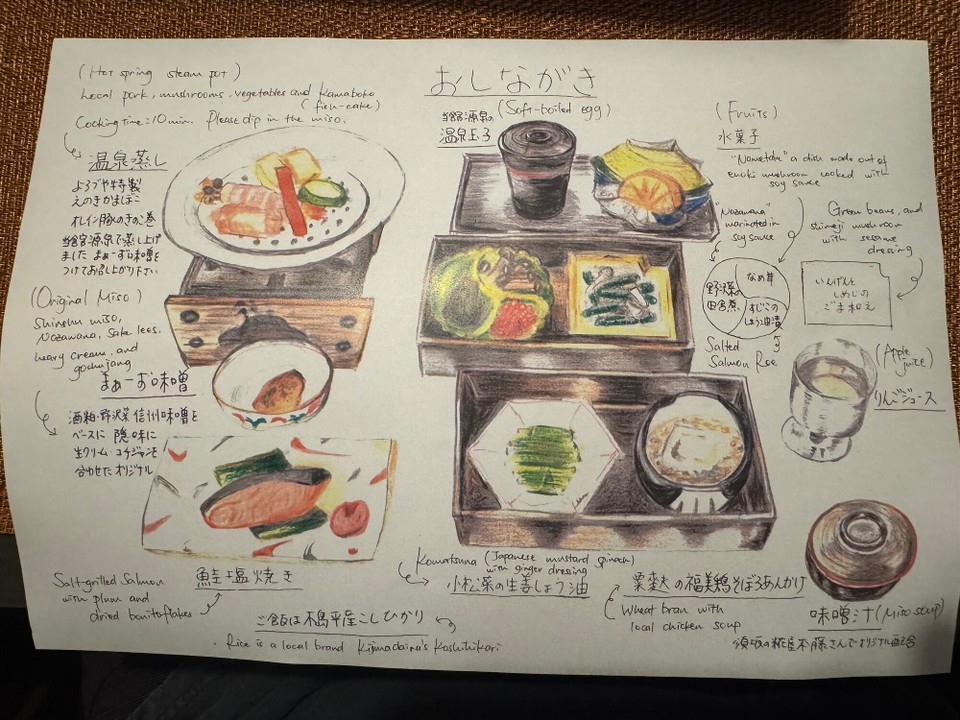 (Hot spring steam pot)
Local pork, mushrooms, vegetables and Kamaboko
(fish-cake)
Cooking time:10min. Please dip in the miso.
温泉蒸し
よろづや特製
えのきかまぼこ
オレイン豚のきのこ巻
当館源泉で蒸し上げ
ました まぁーず味噌を
つけてお召し上がり下さい
(Original Miso)
Shinshu miso,
Nozawana, Sake lees.
heavy cream. and
gochujang
まぁーず味噌
酒粕・野沢菜 信州味噌を
ベースに 隠し味に
生クリーム・コチジャンを
合わせたオリジナル
Salt-grilled Salmon
with plum and
dried bonitoflakes
鮭塩焼き
ご飯は木島平産こしひかり
・Rice is a local brand Kijimadaira's Koshihikari
おしながき
当館源泉の
温泉玉子
(Soft-boiled egg)
(Fruits)
水菓子
"Nametake" a dish made out of
enoki mushroom cooked with
soy sauce
"Nozawana"
marinated in
soy sauce
Green beans, and
shimeji mushroom
with sesame
dressing
野沢菜の
田舎煮
なめ茸
すじこの
しょう油漬
Salted
Salmon Roe
いんげんと
しめじの
ごま和え
(Apple
juice)
りんごジュース
Komatsuna (Japanese mustard spinach)
with ginger dressing
小松菜の生姜しょう油
粟麩の福美鶏そぼろあんかけ
Wheat bran with
local chicken soup
味噌汁(Miso soup)
須坂の糀屋本藤さんでオリジナル配合